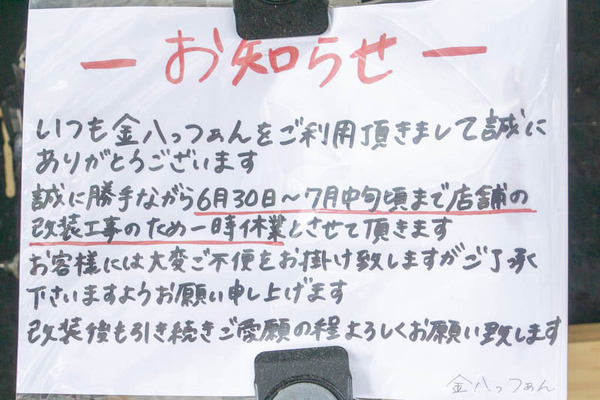 ー お知らせ ー
いつも金八っつぁんをご利用頂きまして誠に
ありがとうございます
誠に勝手ながら6月30日～7月中旬頃まで店舗の
改装工事のため一時休業とさせて頂きます
お客様には大変ご不便をお掛け致しますがご了承
下さいますようお願い申し上げます
改装後も引き続きご愛願の程よろしくお願い致します
金八っつぁん